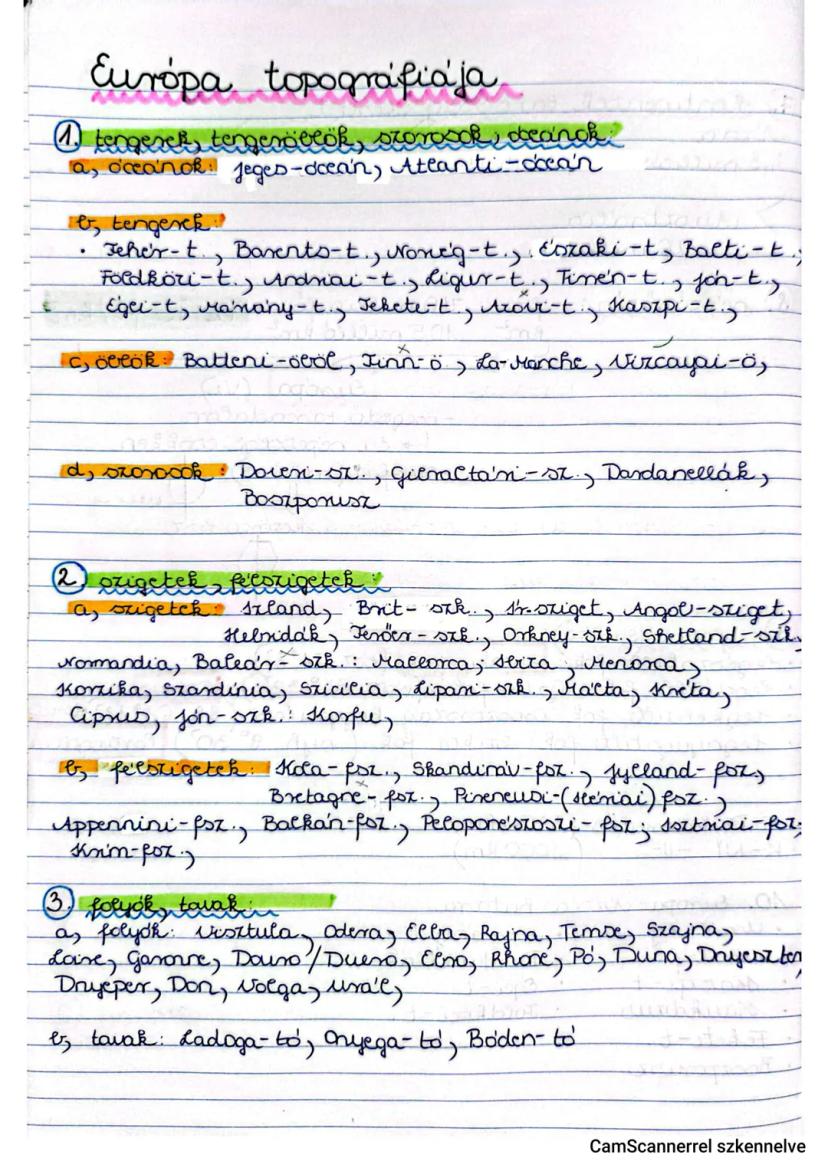 Európa topográfiája
1. tengerek, tengeröblök, szorosok, óceánok:
a, óceánok: Jeges-óceán, Atlanti-óceán
b, tengerek:
• Fehér-t., Barents-t., Norvég-t., Északi-t, Balti-t.,
Földközi-t., Adriai-t., Ligur-t., Tirrén-t., Jón-t.,
Égei-t, Márvány-t., Fekete-t., Azovi-t., Kaszpi-t.,
c, öblök: Botteni-öböl, Finn-ö, La-Manche, Vizcayai-ö,
d, szorosok: Doveri-sz., Gibraltári-sz., Dardanellák,
Boszporusz
2. szigetek, félszigetek:
a, szigetek: Izland, Brit-szk., Ír-sziget, Angol-sziget,
Hebridák, Feröer-szk., Orkney-szk., Shetland-szk.
Normandia, Baleár-szk.: Mallorca, Ibiza, Menorca,
Korzika, Szardínia, Szicília, Lipari-szk., Málta, Kréta,
Ciprus, Jón-szk.: Korfu,
b, félszigetek: Kola-fsz., Skandináv-fsz., Jylland-fsz,
Bretagne-fsz., Pireneusi-(Ibériai) fsz.,
Appennini-fsz., Balkán-fsz., Peloponészoszi-fsz, Isztriai-fsz,
Krím-fsz.,
3. folyók, tavak:
a, folyók: Visztula, Odera, Elba, Rajna, Temze, Szajna,
Loire, Garonne, Douro/Duero, Ebro, Rhone, Pó, Duna, Dnyeszter
Dnyeper, Don, Volga, Urál,
b, tavak: Ladoga-tó, Onyega-tó, Bóden-tó
CamScannerrel szkennelve